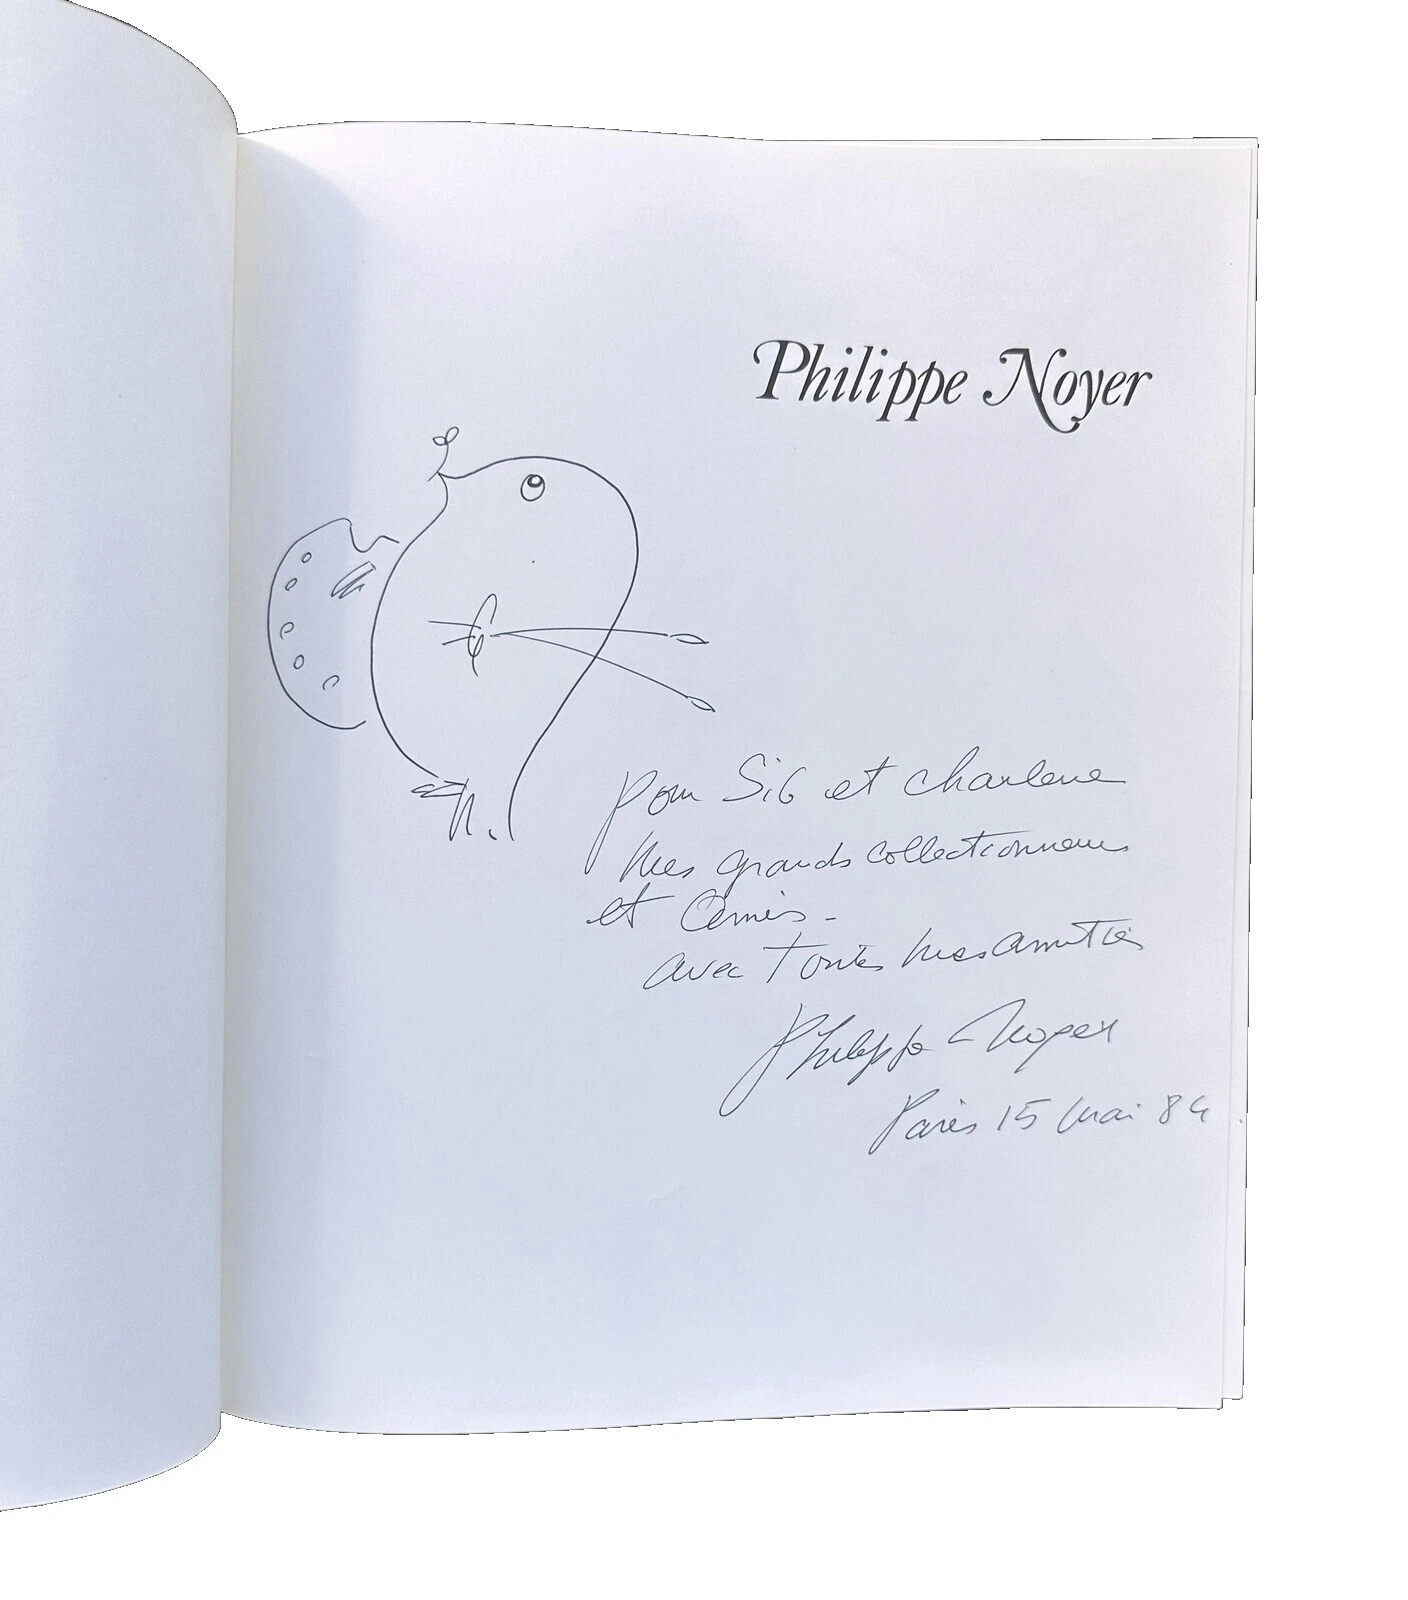 Philippe Noyer
pour Sig et charlene
Mes grands collectionneurs
et Amis -
avec Toutes mes amitiés
Philippe Noyer
Paris 15 Mai 84